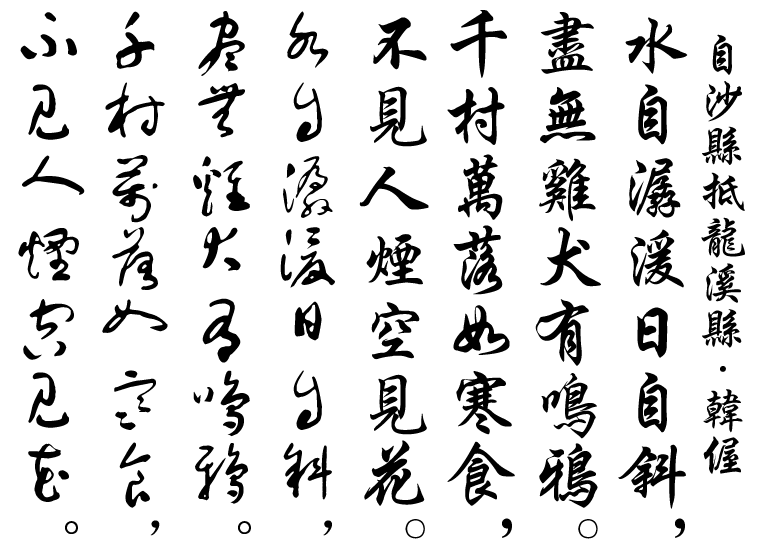 自沙縣抵龍溪縣·韓偓
水自潺湲日自斜，
盡無雞犬有鳴鴉。
千村萬落如寒食，
不見人煙空見花。
水自潺湲日自斜，
盡無雞犬有鳴鴉。
千村萬落如寒食，
不見人煙空見花。